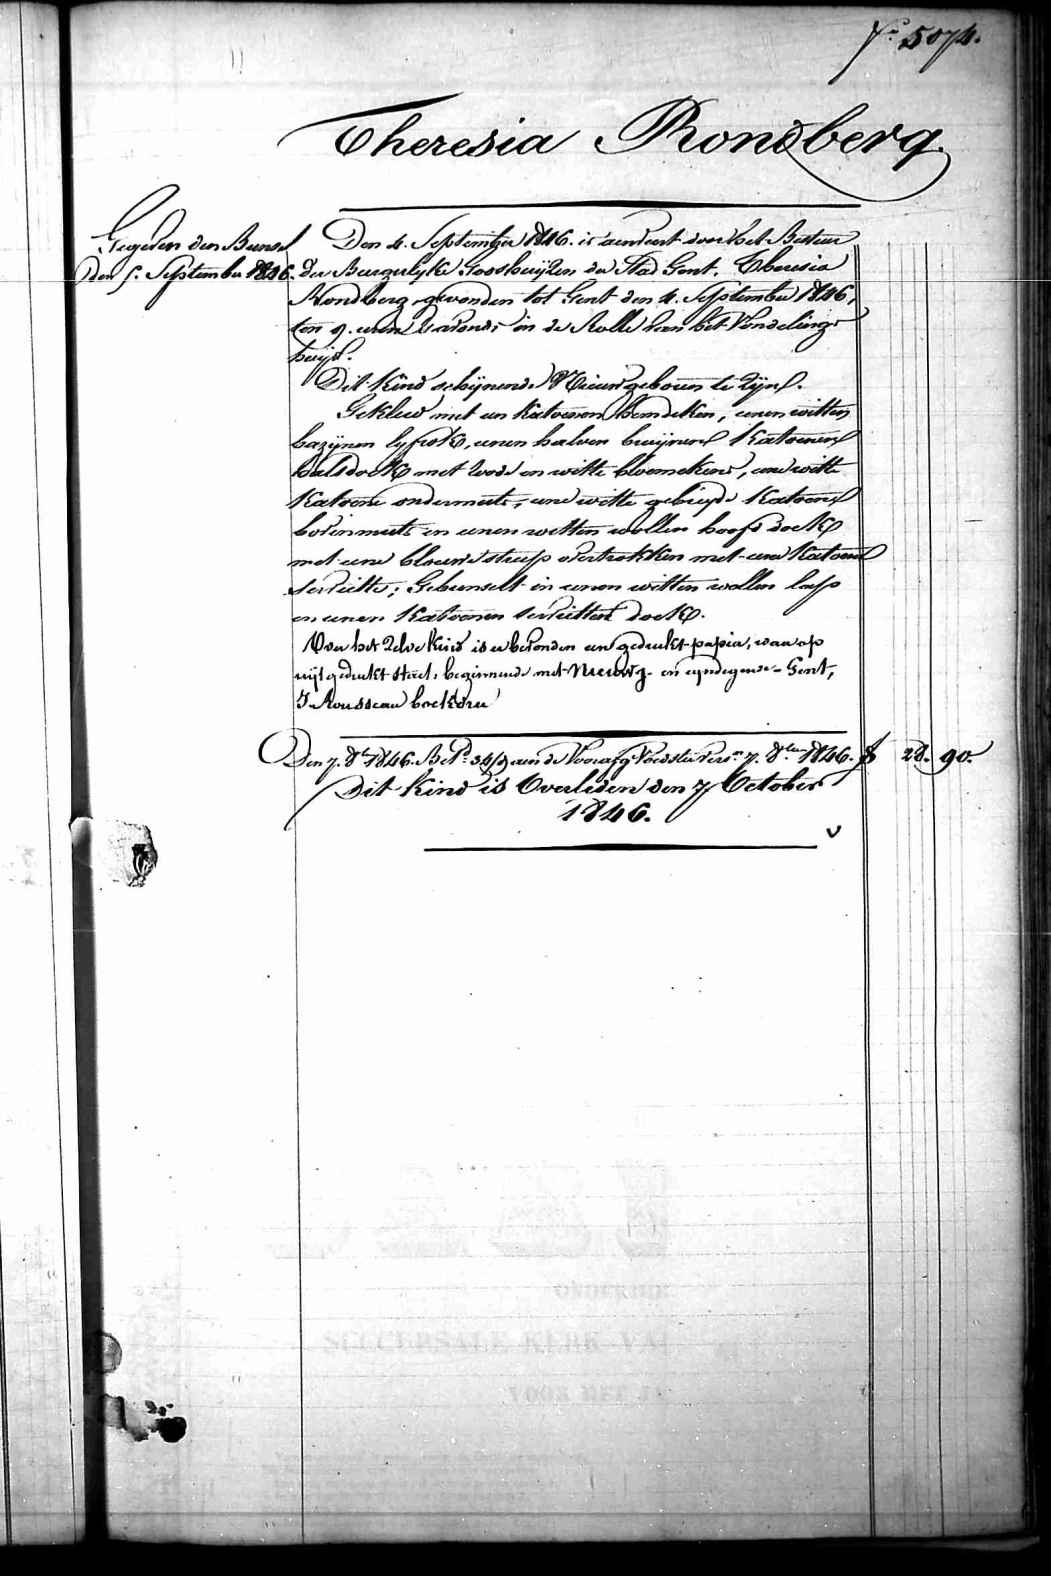 N.º 5074.
Theresia Rondberg.
Gegeven den Bunsel
den 5. September 1846.
Den 4. September 1846. is aenveert door het Bestuur
der Burgerlyke Godshuijzen der Stad Gent, Theresia
Rondberg, gevonden tot Gent den 4. September 1846,
ten 9. uren s'avonds in de Rolle van het Vondeling
huijs.
Dit kind schijnende Nieuw geboren te zijn.
Gekleed met een katoenen hemdeken, eenen witten
bazijnen lyfrok, eenen halven bruijnen katoenen
halsdoek met roode en witte bloemekens, eene witte
katoene ondermuts, eene witte gebreyde katoene
bovenmuts en eenen witten wollen hoofd doek
met eene blauwe streep overtrokken met eene katoene
serviette; Gebunselt in eenen witten wollen lap
en eenen katoenen servietten doek.
Over het zelve kind is er bevonden een gedrukt papier, waar op
uijtgedrukt staet, beginnende met Nieuwg- en eyndegende - Gent,
J. Rousseau boekdru
Den 7. 8.ber 1846. Bet.d 34/9 aen de Voedster 7. 8.ber 1846. f 28. 90.
Dit kind is Overleden den 7 October
1846.
ONDERDE
SUCCURSALE KERK VAN
VOOR HET JA